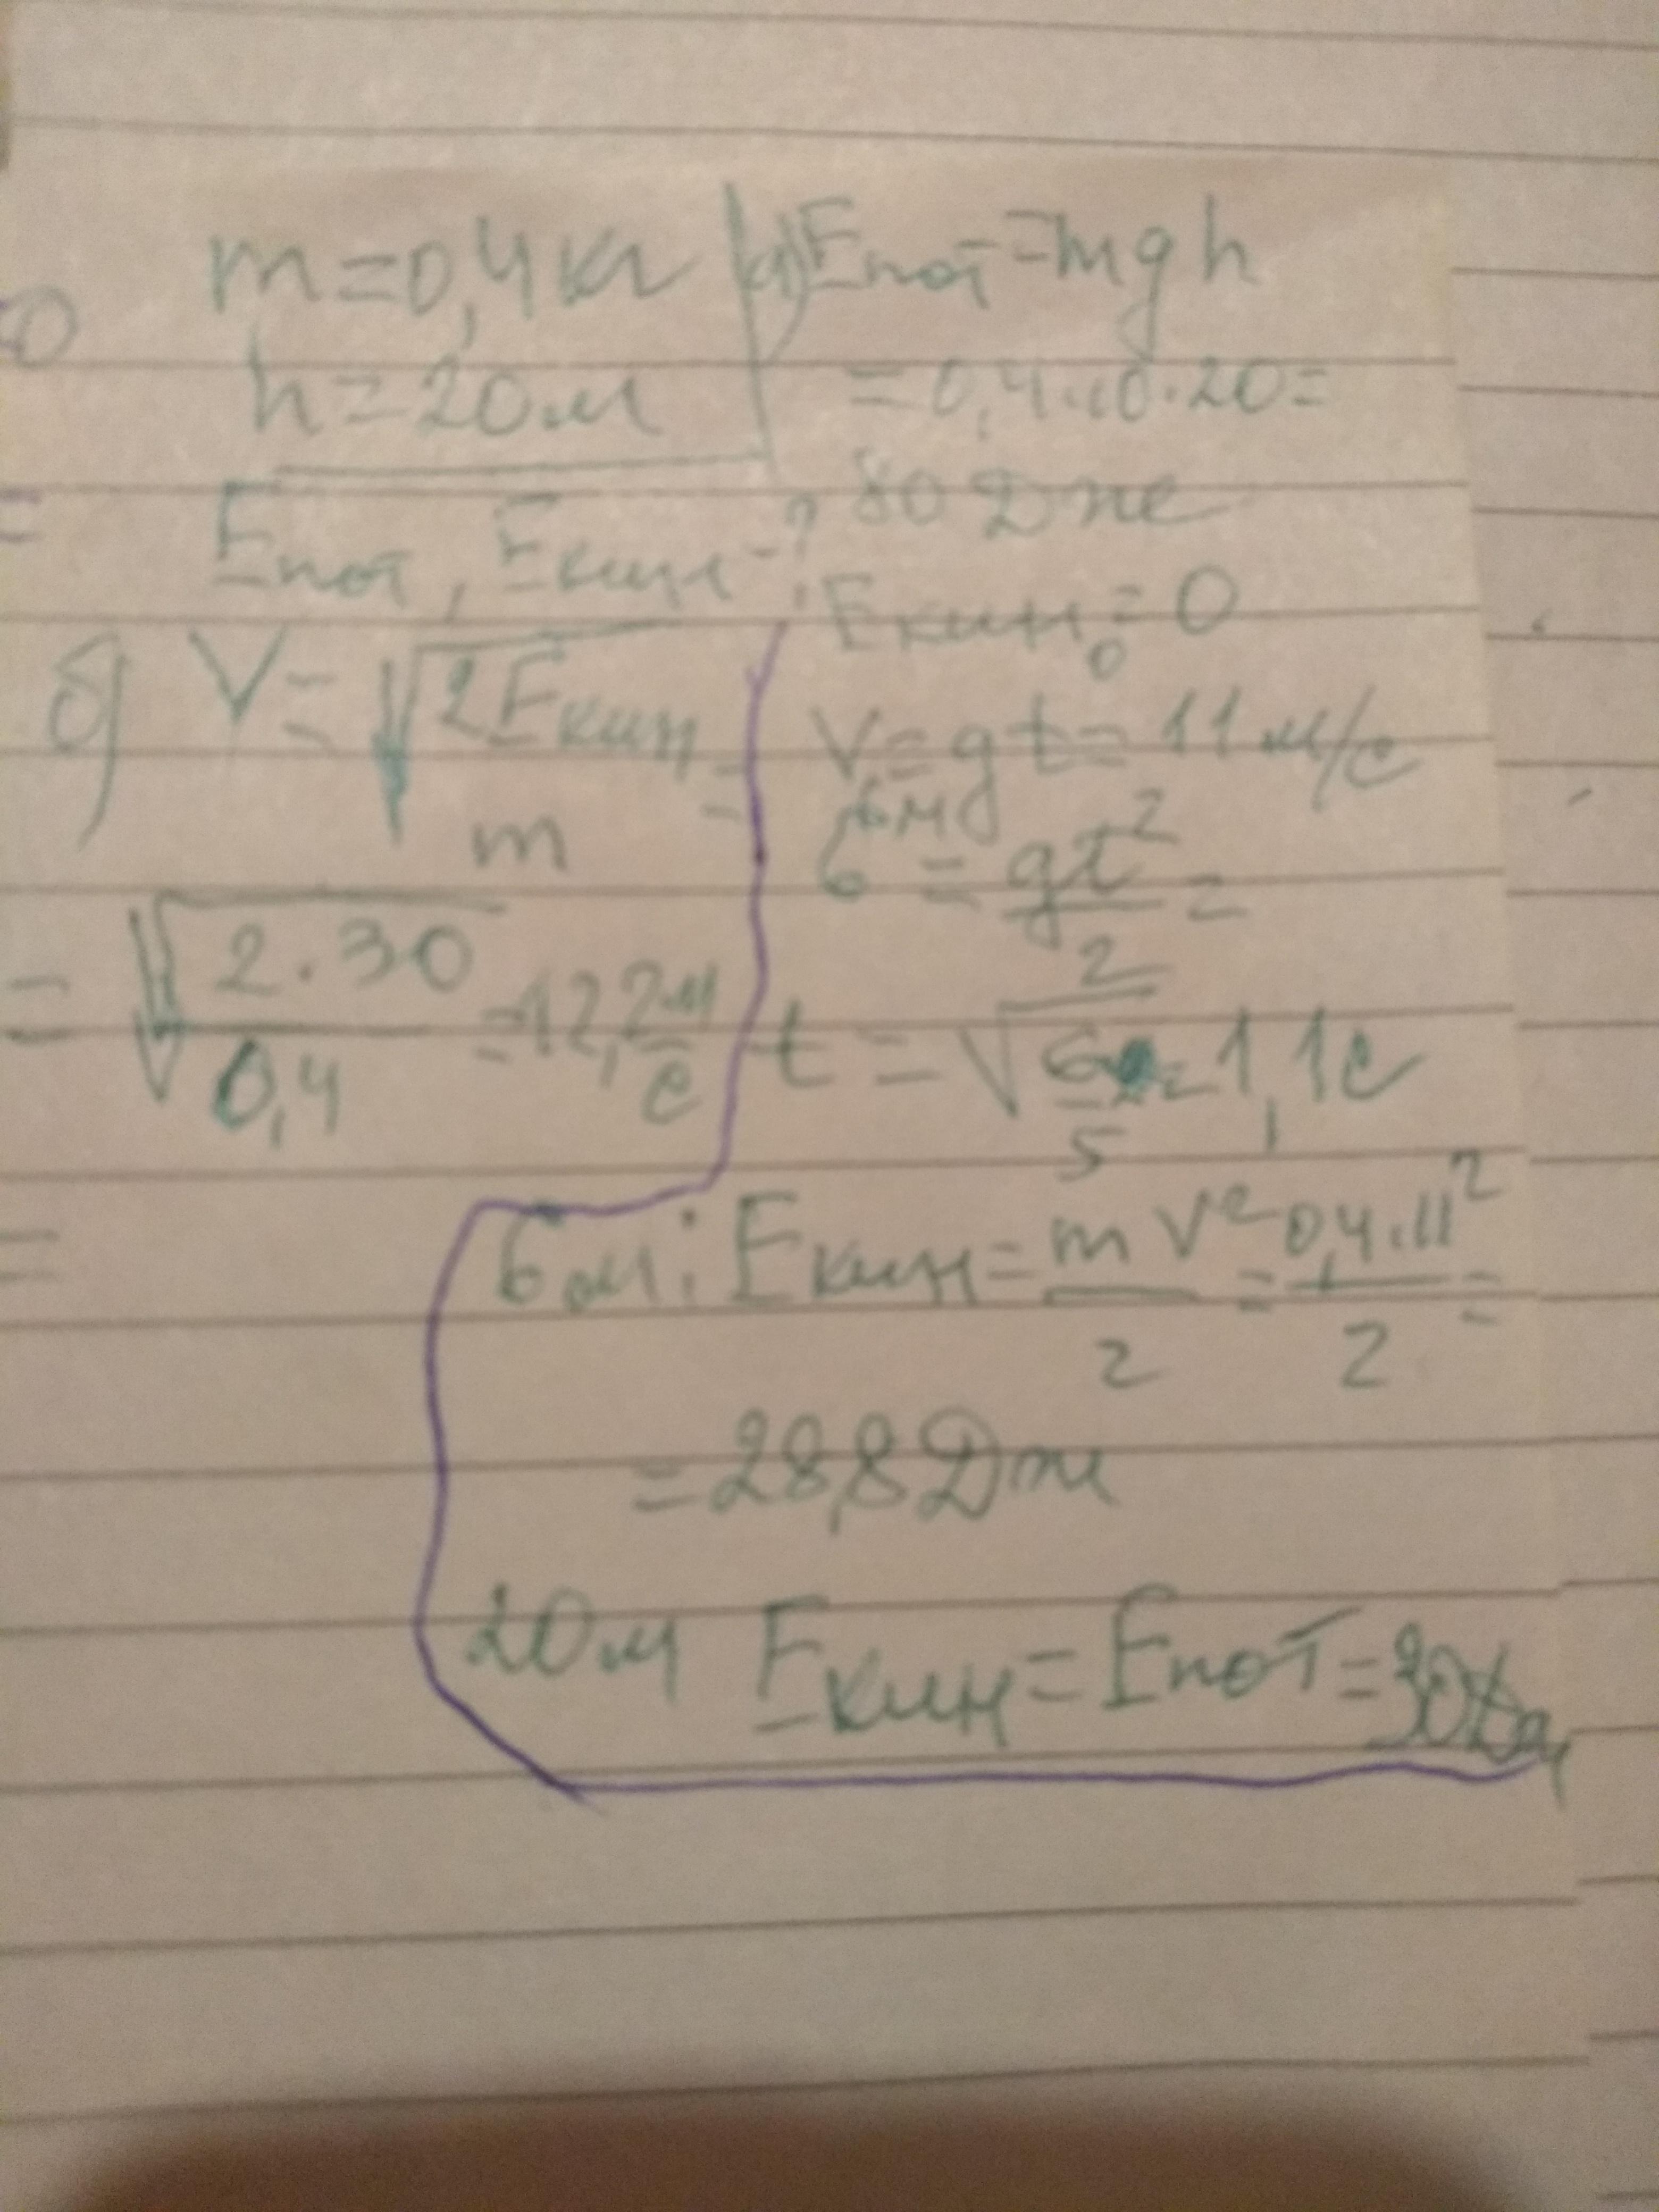 m=0,4кг
h=20м
Eпот, Eкин-?
а) Eпот=mgh
=0,4·10·20=
80 Дж
Eкин₀=0
V6м=gt=11м/с
6=gt²/2=
t=√6/5=1,1с
6м: Eкин=mV²/2=0,4·11²/2=
=28,8Дж
20м Eкин=Eпот=30
б) V=√2Eкин/m=
=√2·30/0,4=12,2м/с